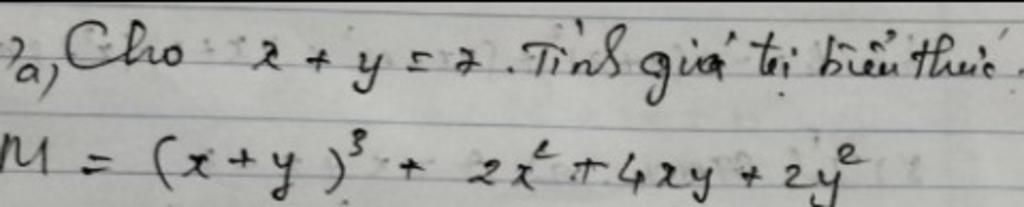 a, Cho x + y = 7. Tính giá trị biểu thức.
M = (x + y)³ + 2x² + 4xy + 2y²